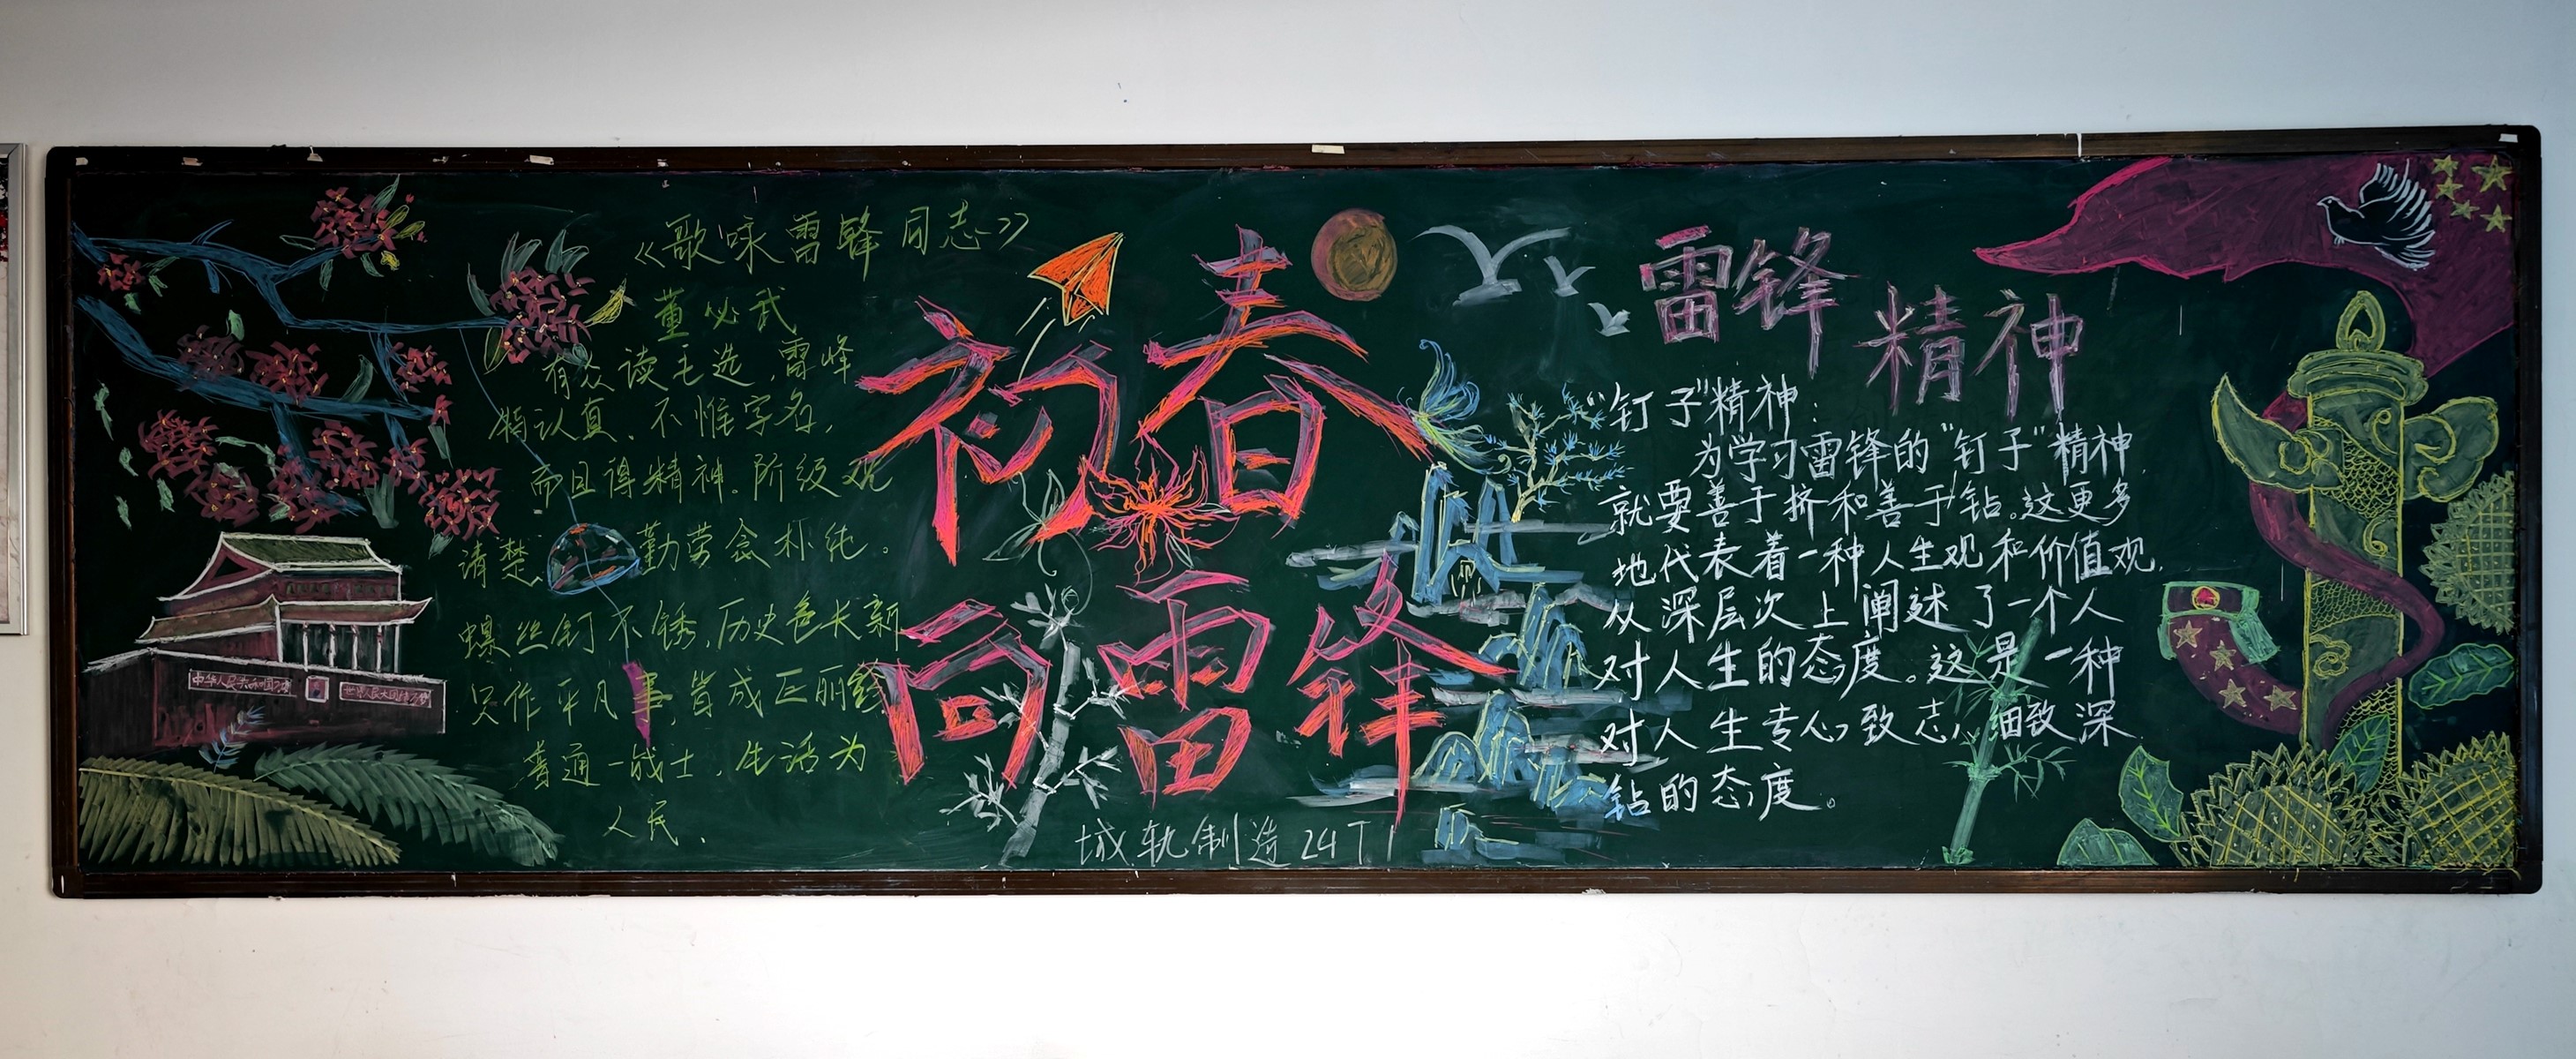 《歌咏雷锋同志》
董必武
有众读毛选,雷峰
特认真、不惟字名,
而且得精神。阶级观
请楚、勤劳念朴纯。
螺丝钉不锈,历史色长新
只作平凡事,皆成巨丽
普通一战士,生活为
人民.
中华人民共和国万岁
世界人民大团结万岁
初春
同雷锋
城轨制造24T1
雷锋
精神
“钉子”精神:
为学习雷锋的“钉子”精神,
就要善于挤和善于钻。这更多
地代表着一种人生观和价值观,
从深层次上阐述了一个人
对人生的态度。这是一种
对人生专心致志、细致深
钻的态度。